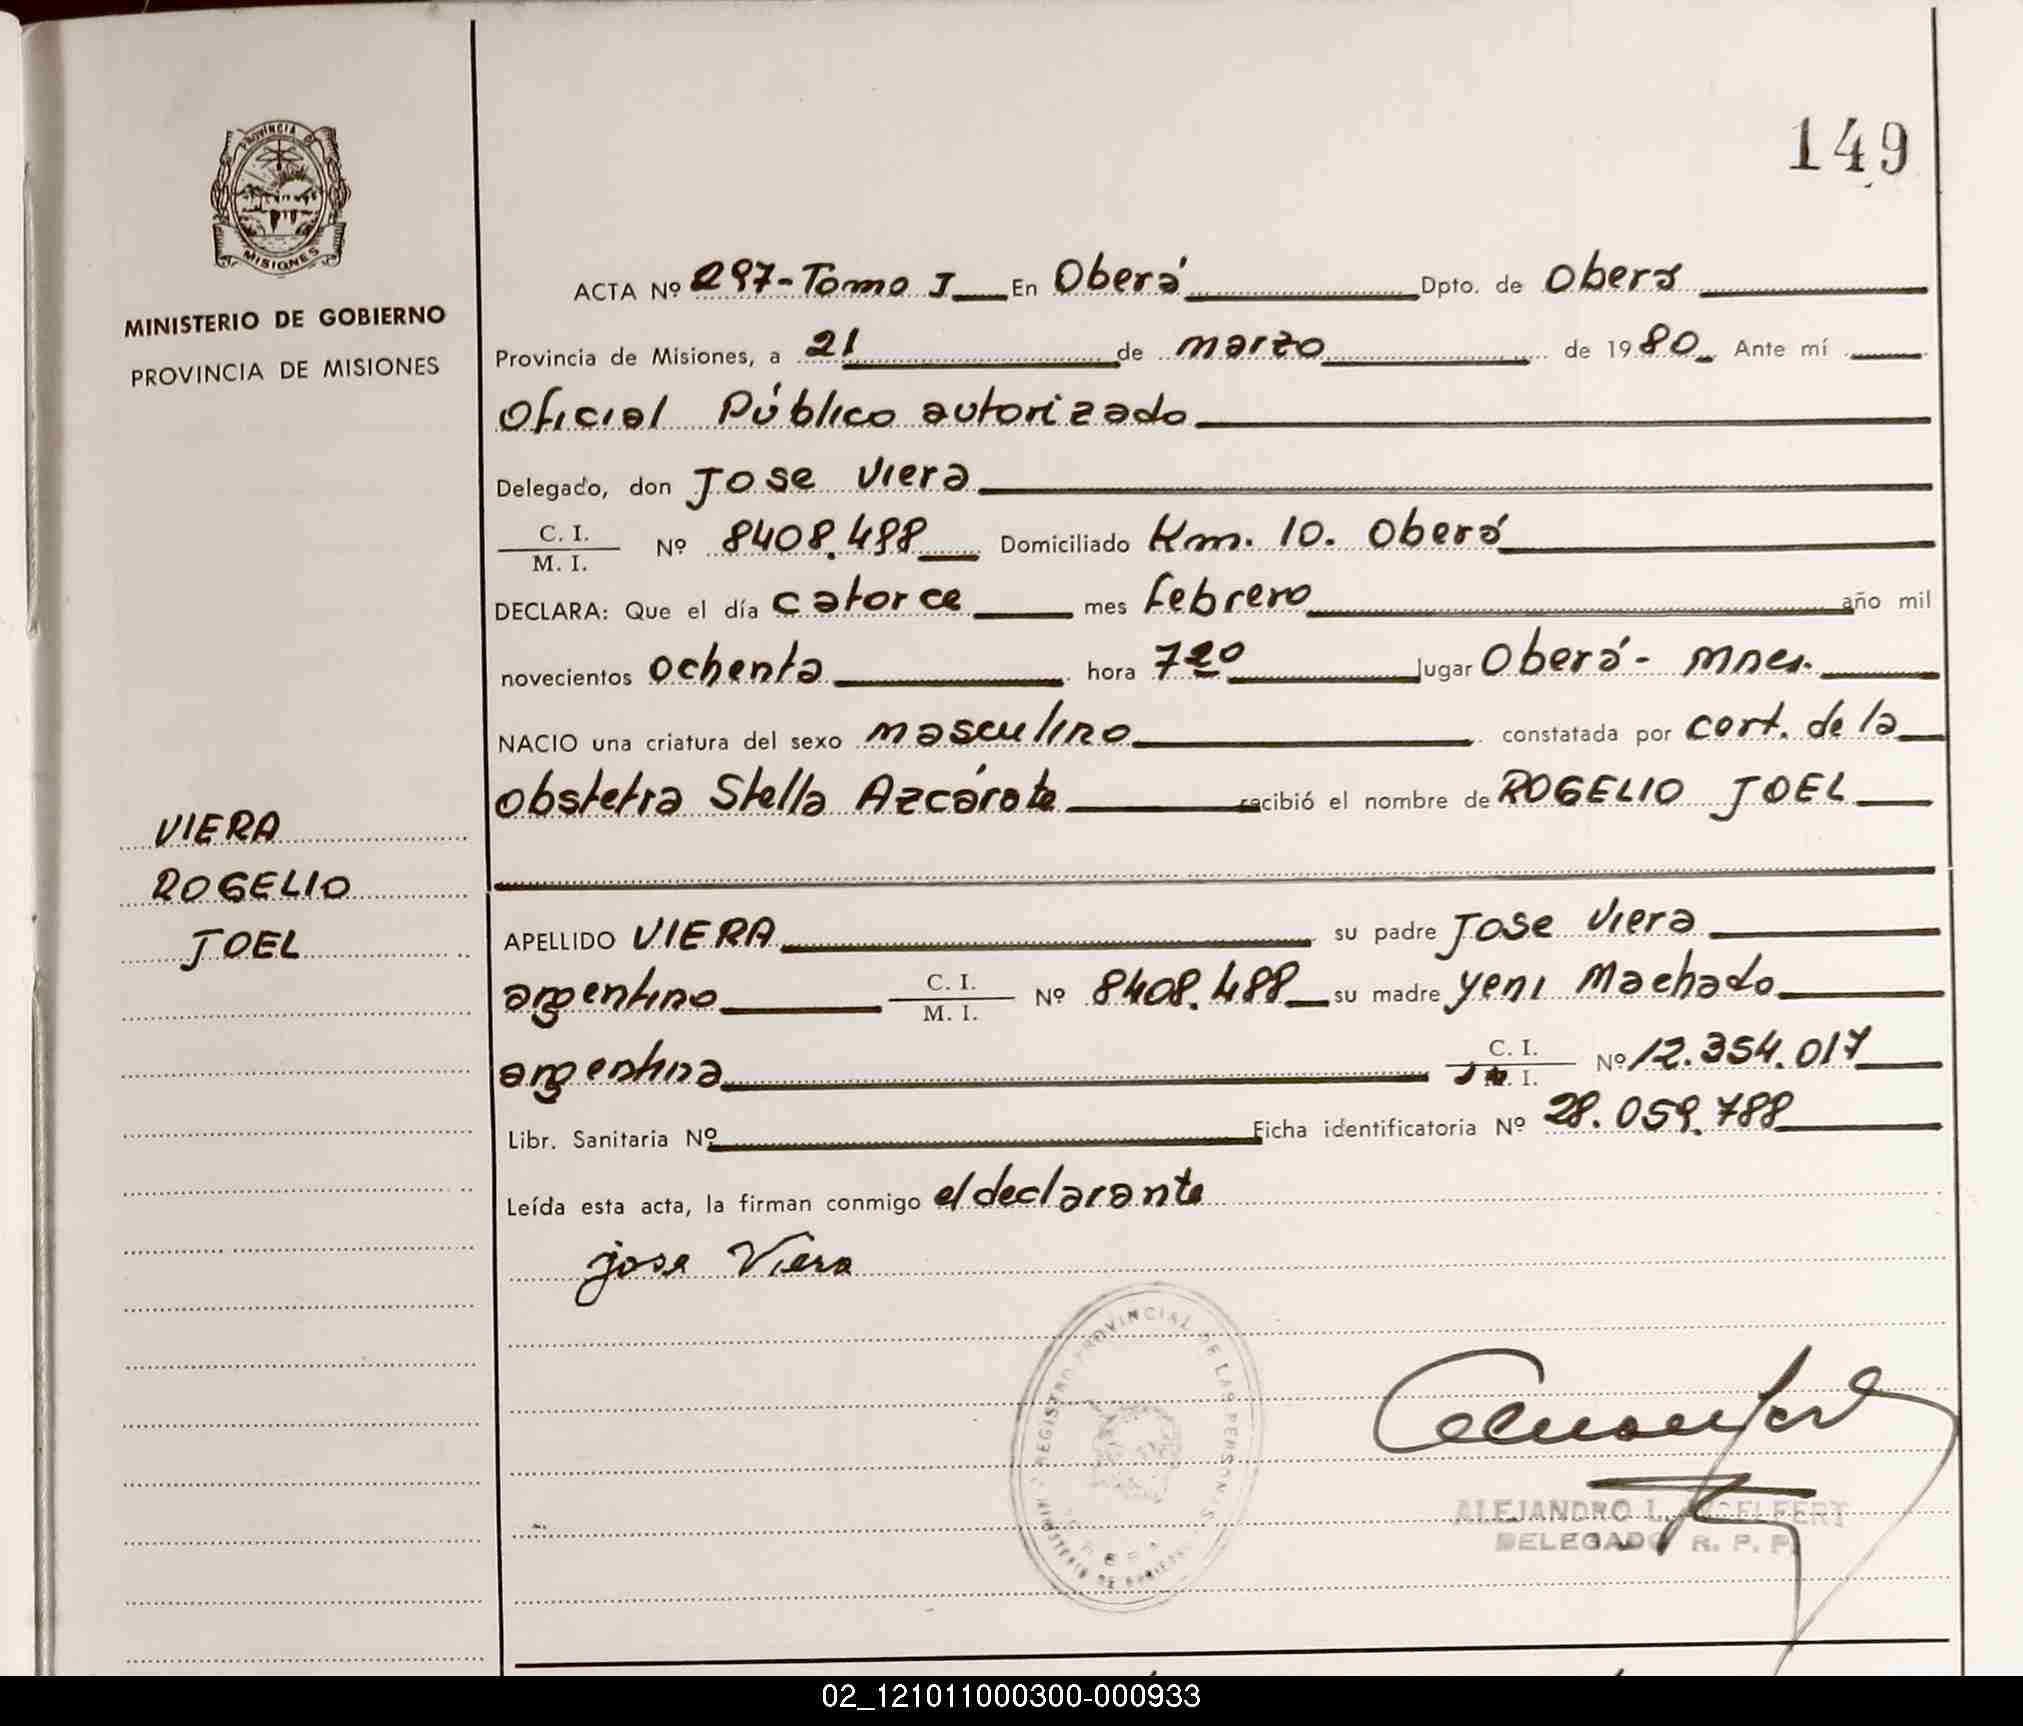 149
PROVINCIA DE
MISIONES
MINISTERIO DE GOBIERNO
PROVINCIA DE MISIONES
ACTA Nº 297-Tomo I En Oberá Dpto. de Oberá
Provincia de Misiones, a 21 de marzo de 1980 Ante mí
Oficial Público autorizado
Delegado, don Jose Viera
C. I.
M. I. Nº 8408.488 Domiciliado Km. 10. Oberá
DECLARA: Que el día catorce mes febrero año mil
novecientos ochenta hora 7 20 lugar Oberá - Mnes.
NACIO una criatura del sexo masculino constatada por cert. de la
obstetra Stella Azcárate recibió el nombre de ROGELIO JOEL
VIERA
ROGELIO
JOEL
APELLIDO VIERA su padre Jose Viera
argentino C. I.
M. I. Nº 8408.488 su madre Yeni Machado
argentina C. I.
M. I. Nº 12.354.017
Libr. Sanitaria Nº Ficha identificatoria Nº 28.059.788
Leída esta acta, la firman conmigo el declarante
jose Viera
REGISTRO PROVINCIAL DE LAS PERSONAS
MINISTERIO DE GOBIERNO
OBERA
ALEJANDRO L.
DELEGADO R. P. P.
02_121011000300-000933